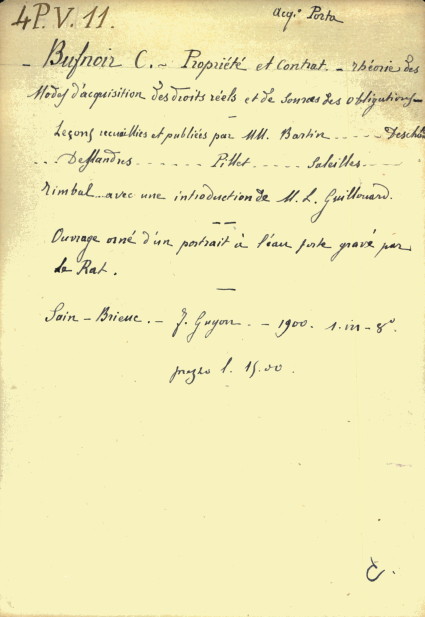 4P.V.11.
Acq. Porta
- Bufnoir C. ~ Propriété et Contrat. - théorie des
Modes d'acquisition des droits réels et de Sources des obligations -
Leçons recueillies et publiées par MM. Bartin ..... Desch
.. Deslandres ..... Pillet ..... Saleilles ....
Timbal .. avec une introduction de M. L. Guillouard.
Ouvrage orné d'un portrait à l'eau forte gravé par
Le Rat.
Sain - Brieuc. - F. Guyon. - 1900. 1. in - 8°
prezzo l. 15.00.
C.